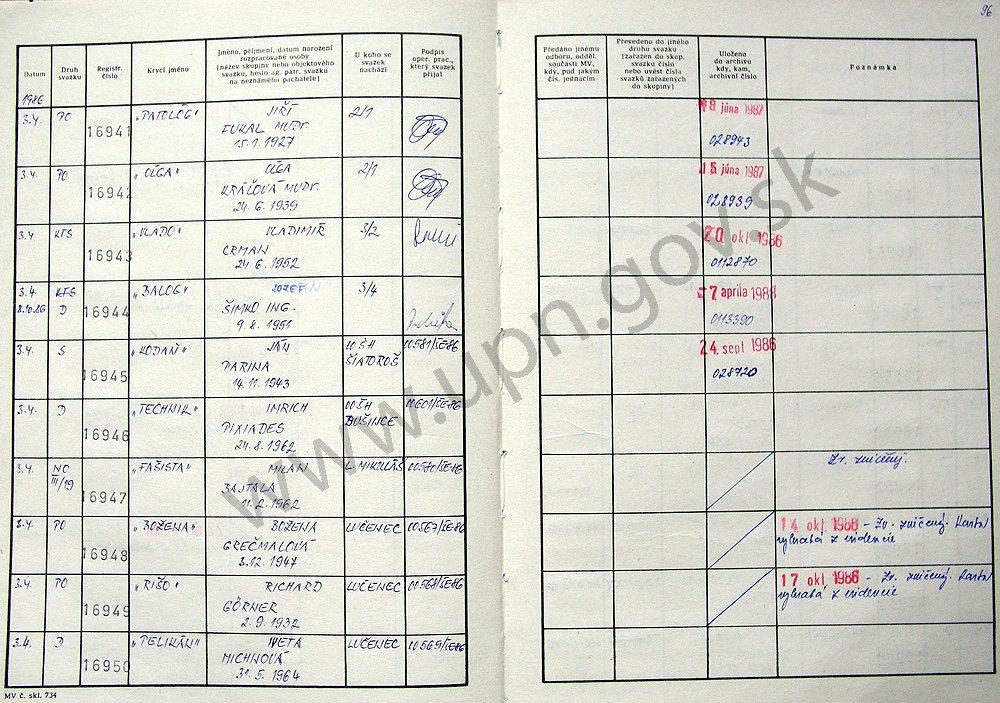 96
Datum
Druh svazku
Registr. číslo
Krycí jméno
Jméno, příjmení, datum narození
rozpracované osoby
(název skupiny nebo objektového
svazku, heslo ag. pátr. svazku
na neznámého pachatele)
U koho se
svazek
nachází
Podpis
oper. prac.,
který svazek
přijal
Předáno jinému
odboru, odděl.
součásti MV,
kdy, pod jakým
čís. jednacím
Převedeno do jiného
druhu svazku
(zařazen do skup.
svazku číslo
nebo uvést čísla
svazků zařazených
do skupiny)
Uloženo
do archivu
kdy, kam,
archivní číslo
Poznámka
1986
3.4. PO 16941 „PATOLÓG" JIŘÍ 2/1
FUKAL MUDr.
15.1.1927
18 júna 1987
028943
3.4. PO 16942 „OĽGA" OĽGA 2/1
KRÁĽOVÁ MUDr.
24.6.1939
15 júna 1987
028939
3.4. KTS 16943 „VLADO" VLADIMÍR 3/2
CRMAN
24.6.1952
20 okt 1986
0112870
3.4. KTS 16944 „BALOG" 3/4
8.10.86 D ŠIMKO ING.
9.8.1951
7 apríla 1988
0113390
3.4. S 16945 „KODAŇ" JÁN OO ŠH 00581/ŠE-86
PARINA ŠIATOROŠ
14.11.1943
24 sept 1986
028720
3.4. D 16946 „TECHNIK" IMRICH OO ŠH 00601/ŠE-86
PIXIADES BUŠINCE
24.8.1962
3.4. NO 16947 „FAŠISTA" MILAN L. MIKULÁŠ 00570/ŠE-86
III/19 BAJTALA
11.2.1962
Zv. zničený.
3.4. PO 16948 „BOŽENA" BOŽENA LUČENEC 00567/ŠE-86
GREČMALOVÁ
3.12.1947
14 okt 1986 - Zv. zničený. Karta
vybratá z evidencie
3.4. PO 16949 „RIŠO" RICHARD LUČENEC 00568/ŠE-86
GÖRNER
2.9.1932
17 okt 1986 - Zv. zničený. Karta
vybratá z evidencie
3.4. D 16950 „PELIKÁN" IVETA LUČENEC 00569/ŠE-86
MICHNOVÁ
31.5.1964
MV č. skl. 734
www.upn.gov.sk